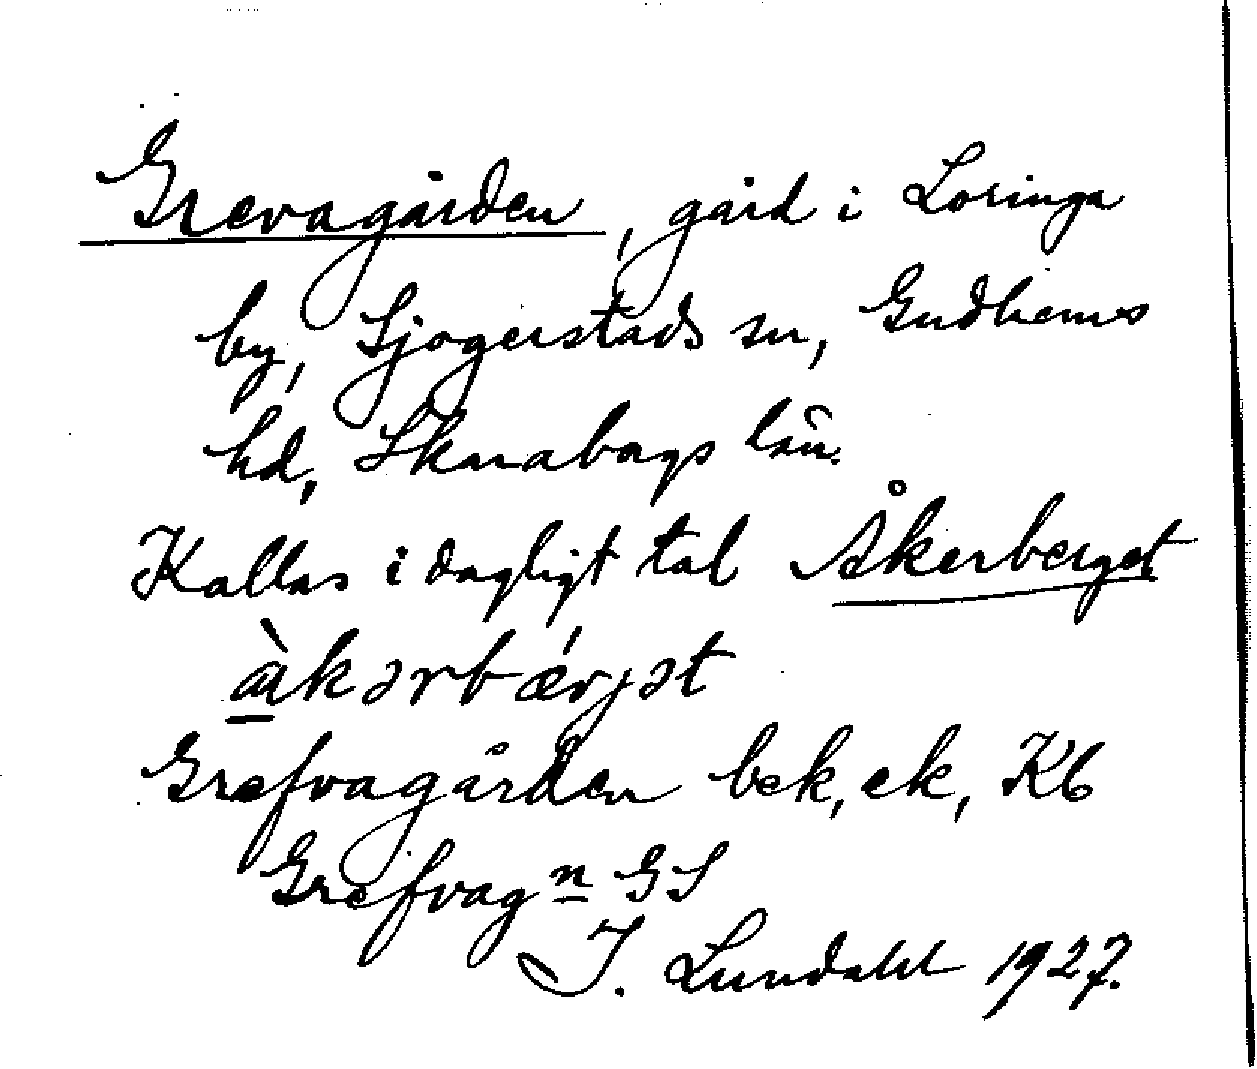 Grevagården, gård i Loringa
by, Sjogerstads sn, Gudhems
hd, Skarabogs län.
Kallas i dagligt tal Åkerberget
àkərbǽrjət
Grefvagården bek, ek, Kb
Grefvag n GS
I. Lundahl 1927.